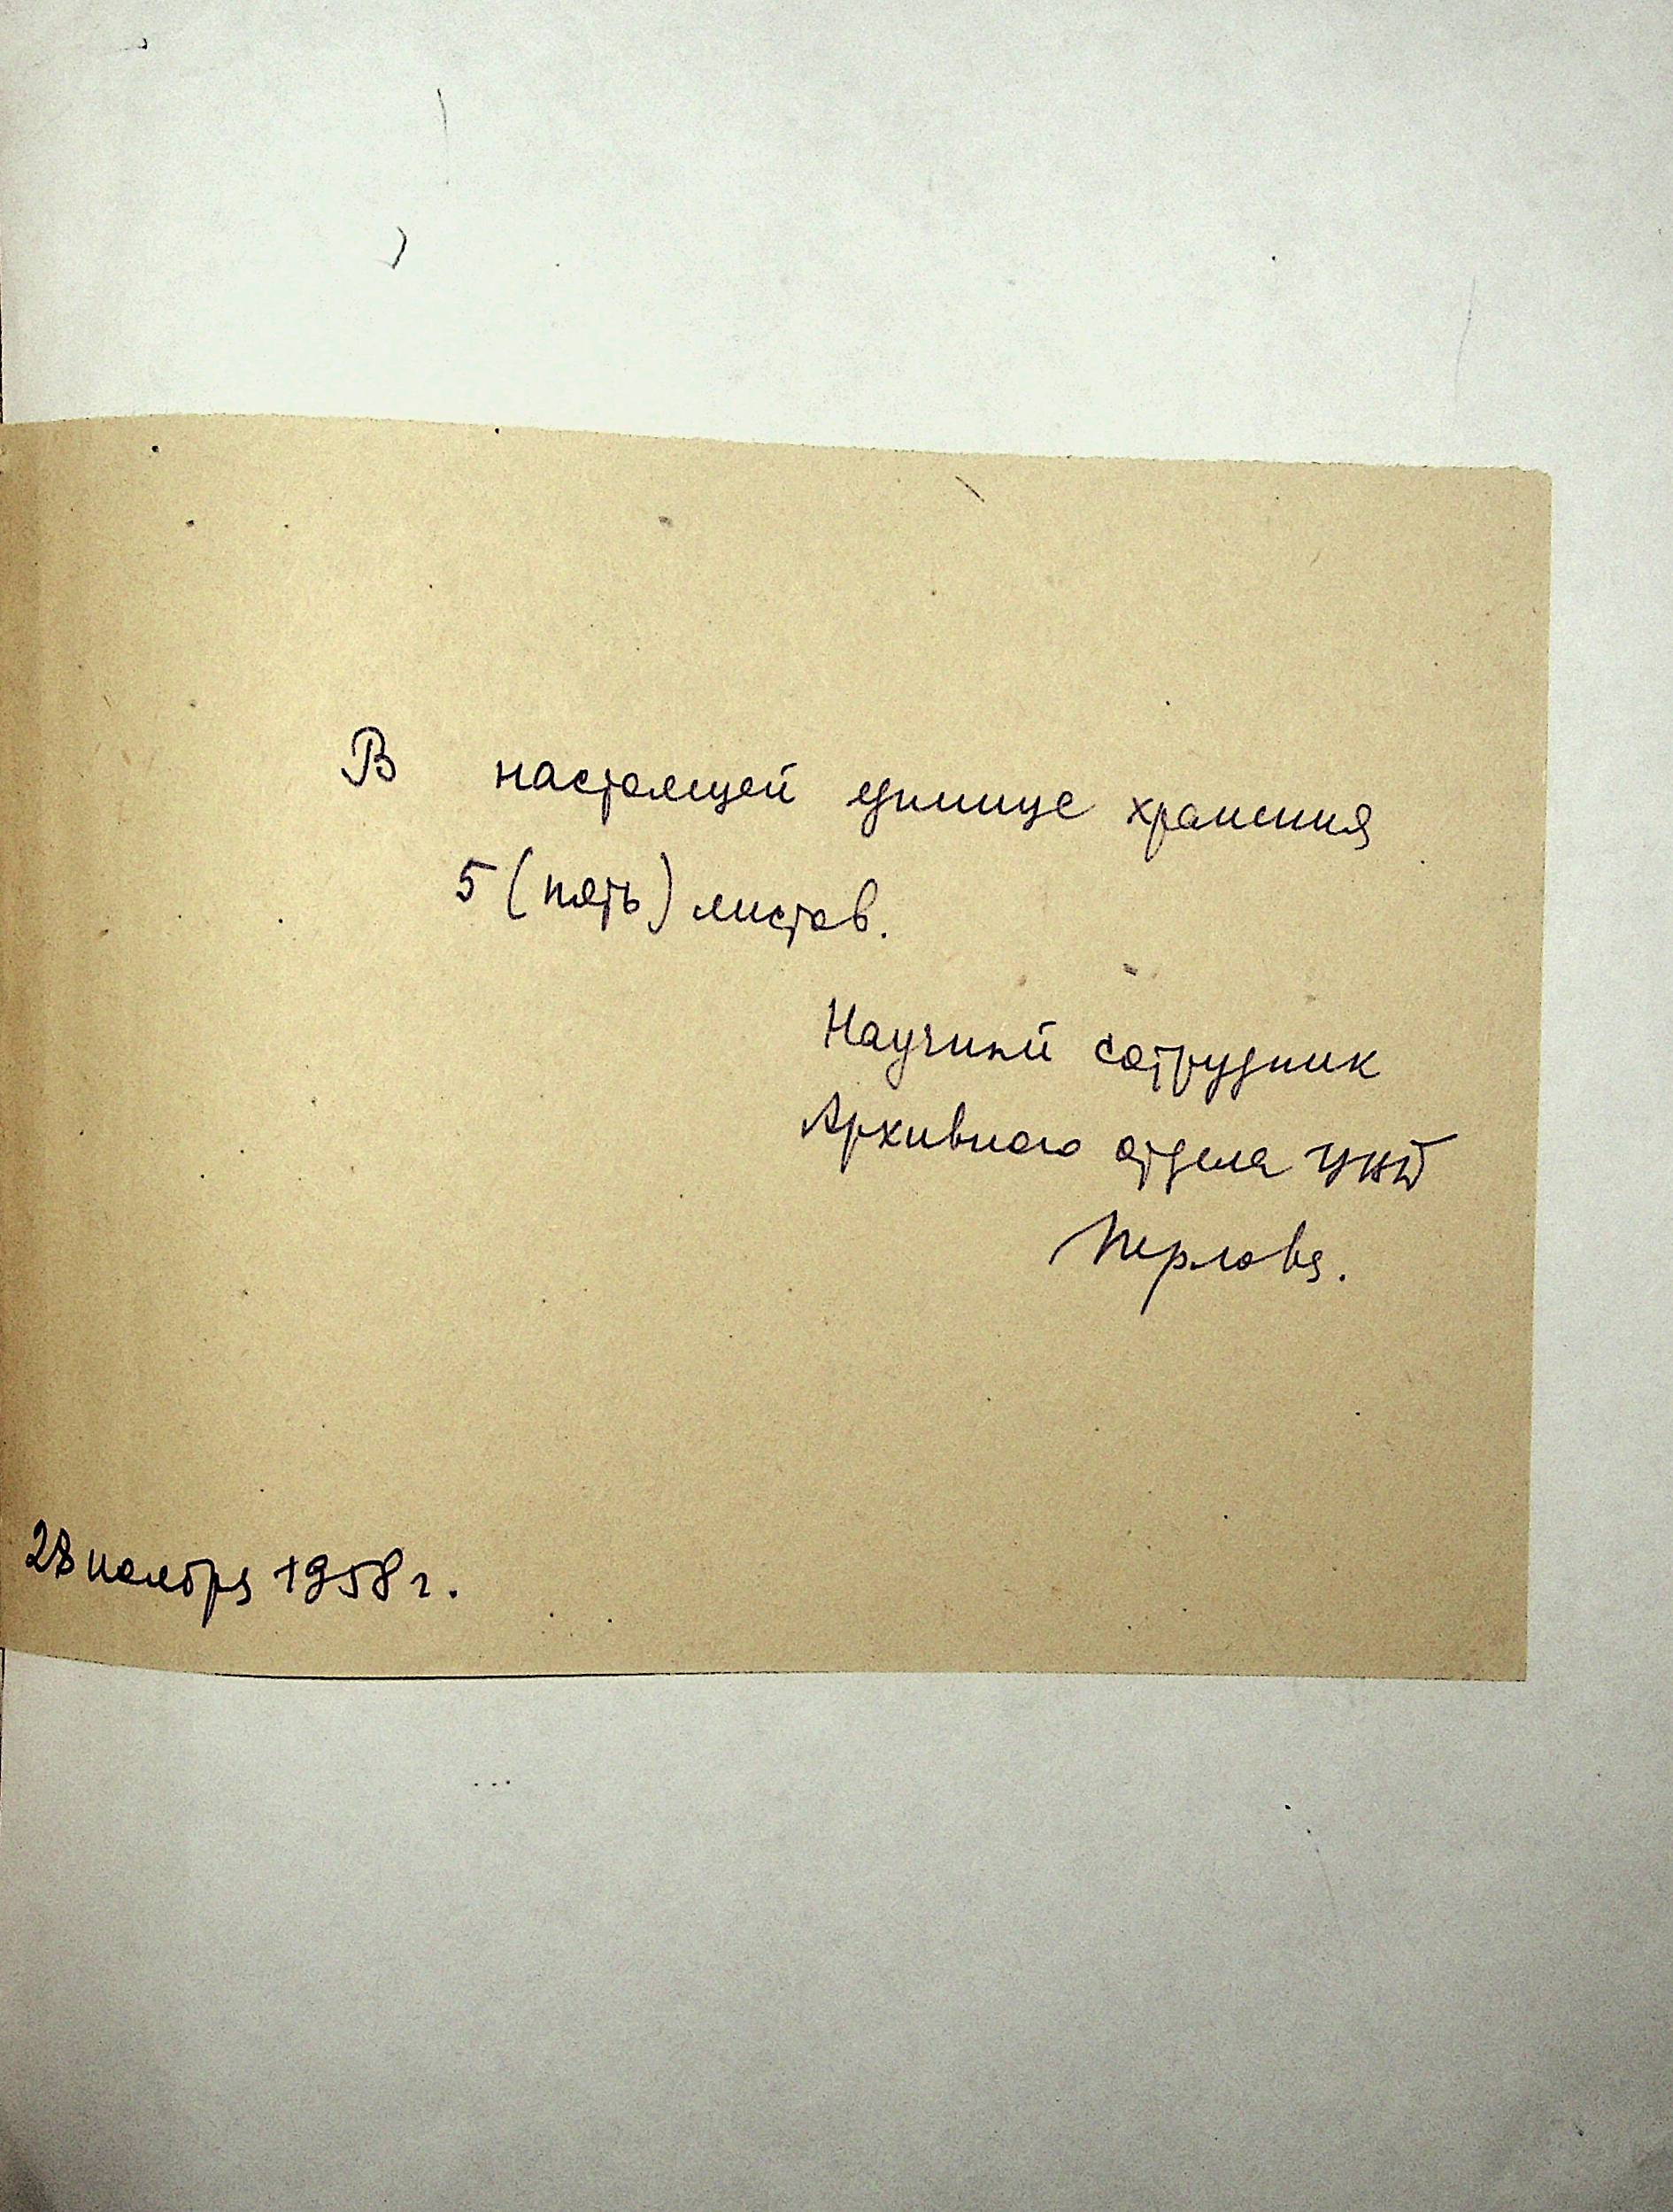 В настоящей единице хранения
5 (пять) листов.
Научный сотрудник
Архивного отдела
Перлова.
28 ноября 1958 г.